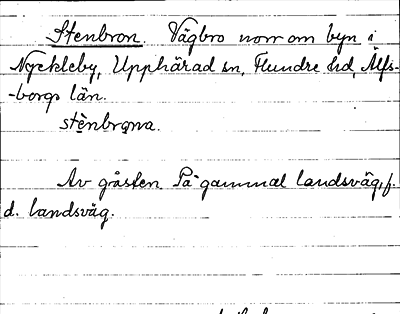 Stenbron. Vägbro norr om byn i
Nyckleby, Upphärad sn, Flundre hd, Älfs-
-borgs län.
stènbrǫna.
Av gråsten. På gammal landsväg, f.
d. landsväg.